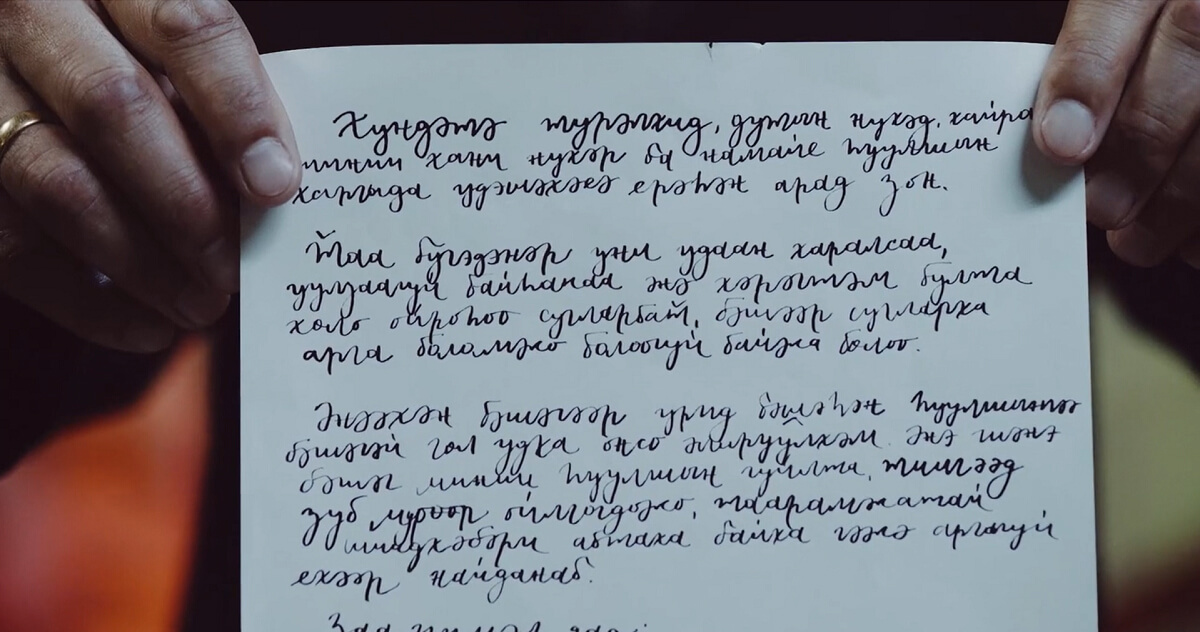 Хүндэтэ түрэлхид, дүтын нүхэд, хайра
минии хани нүхэр ба намайе һүүлшын
харгыда үдэшэхэеэ ерэһэн арад зон.
Таа бүгэдэнэр уни удаан харалсаа,
уулзаагүй байһанда энэ хэрэгтэм булта
холо ойроһоо сугларбат, бэшээр суглараха
арга боломжо бололгүй байжа болоо.
Энээхэн бэшэгээр урид бэшэһэн һүүлшынгээ
бэшэгэй гол удха онсо зыруулхэм. Энэ шэнэ
бэшэг минии һүүлшын гуйлта, тиигээд
зүб мүрөөр ойлгогдожо, таарамжатай
шиидхэбэри абтаха байха гэжэ аргагүй
ехээр найданаб.